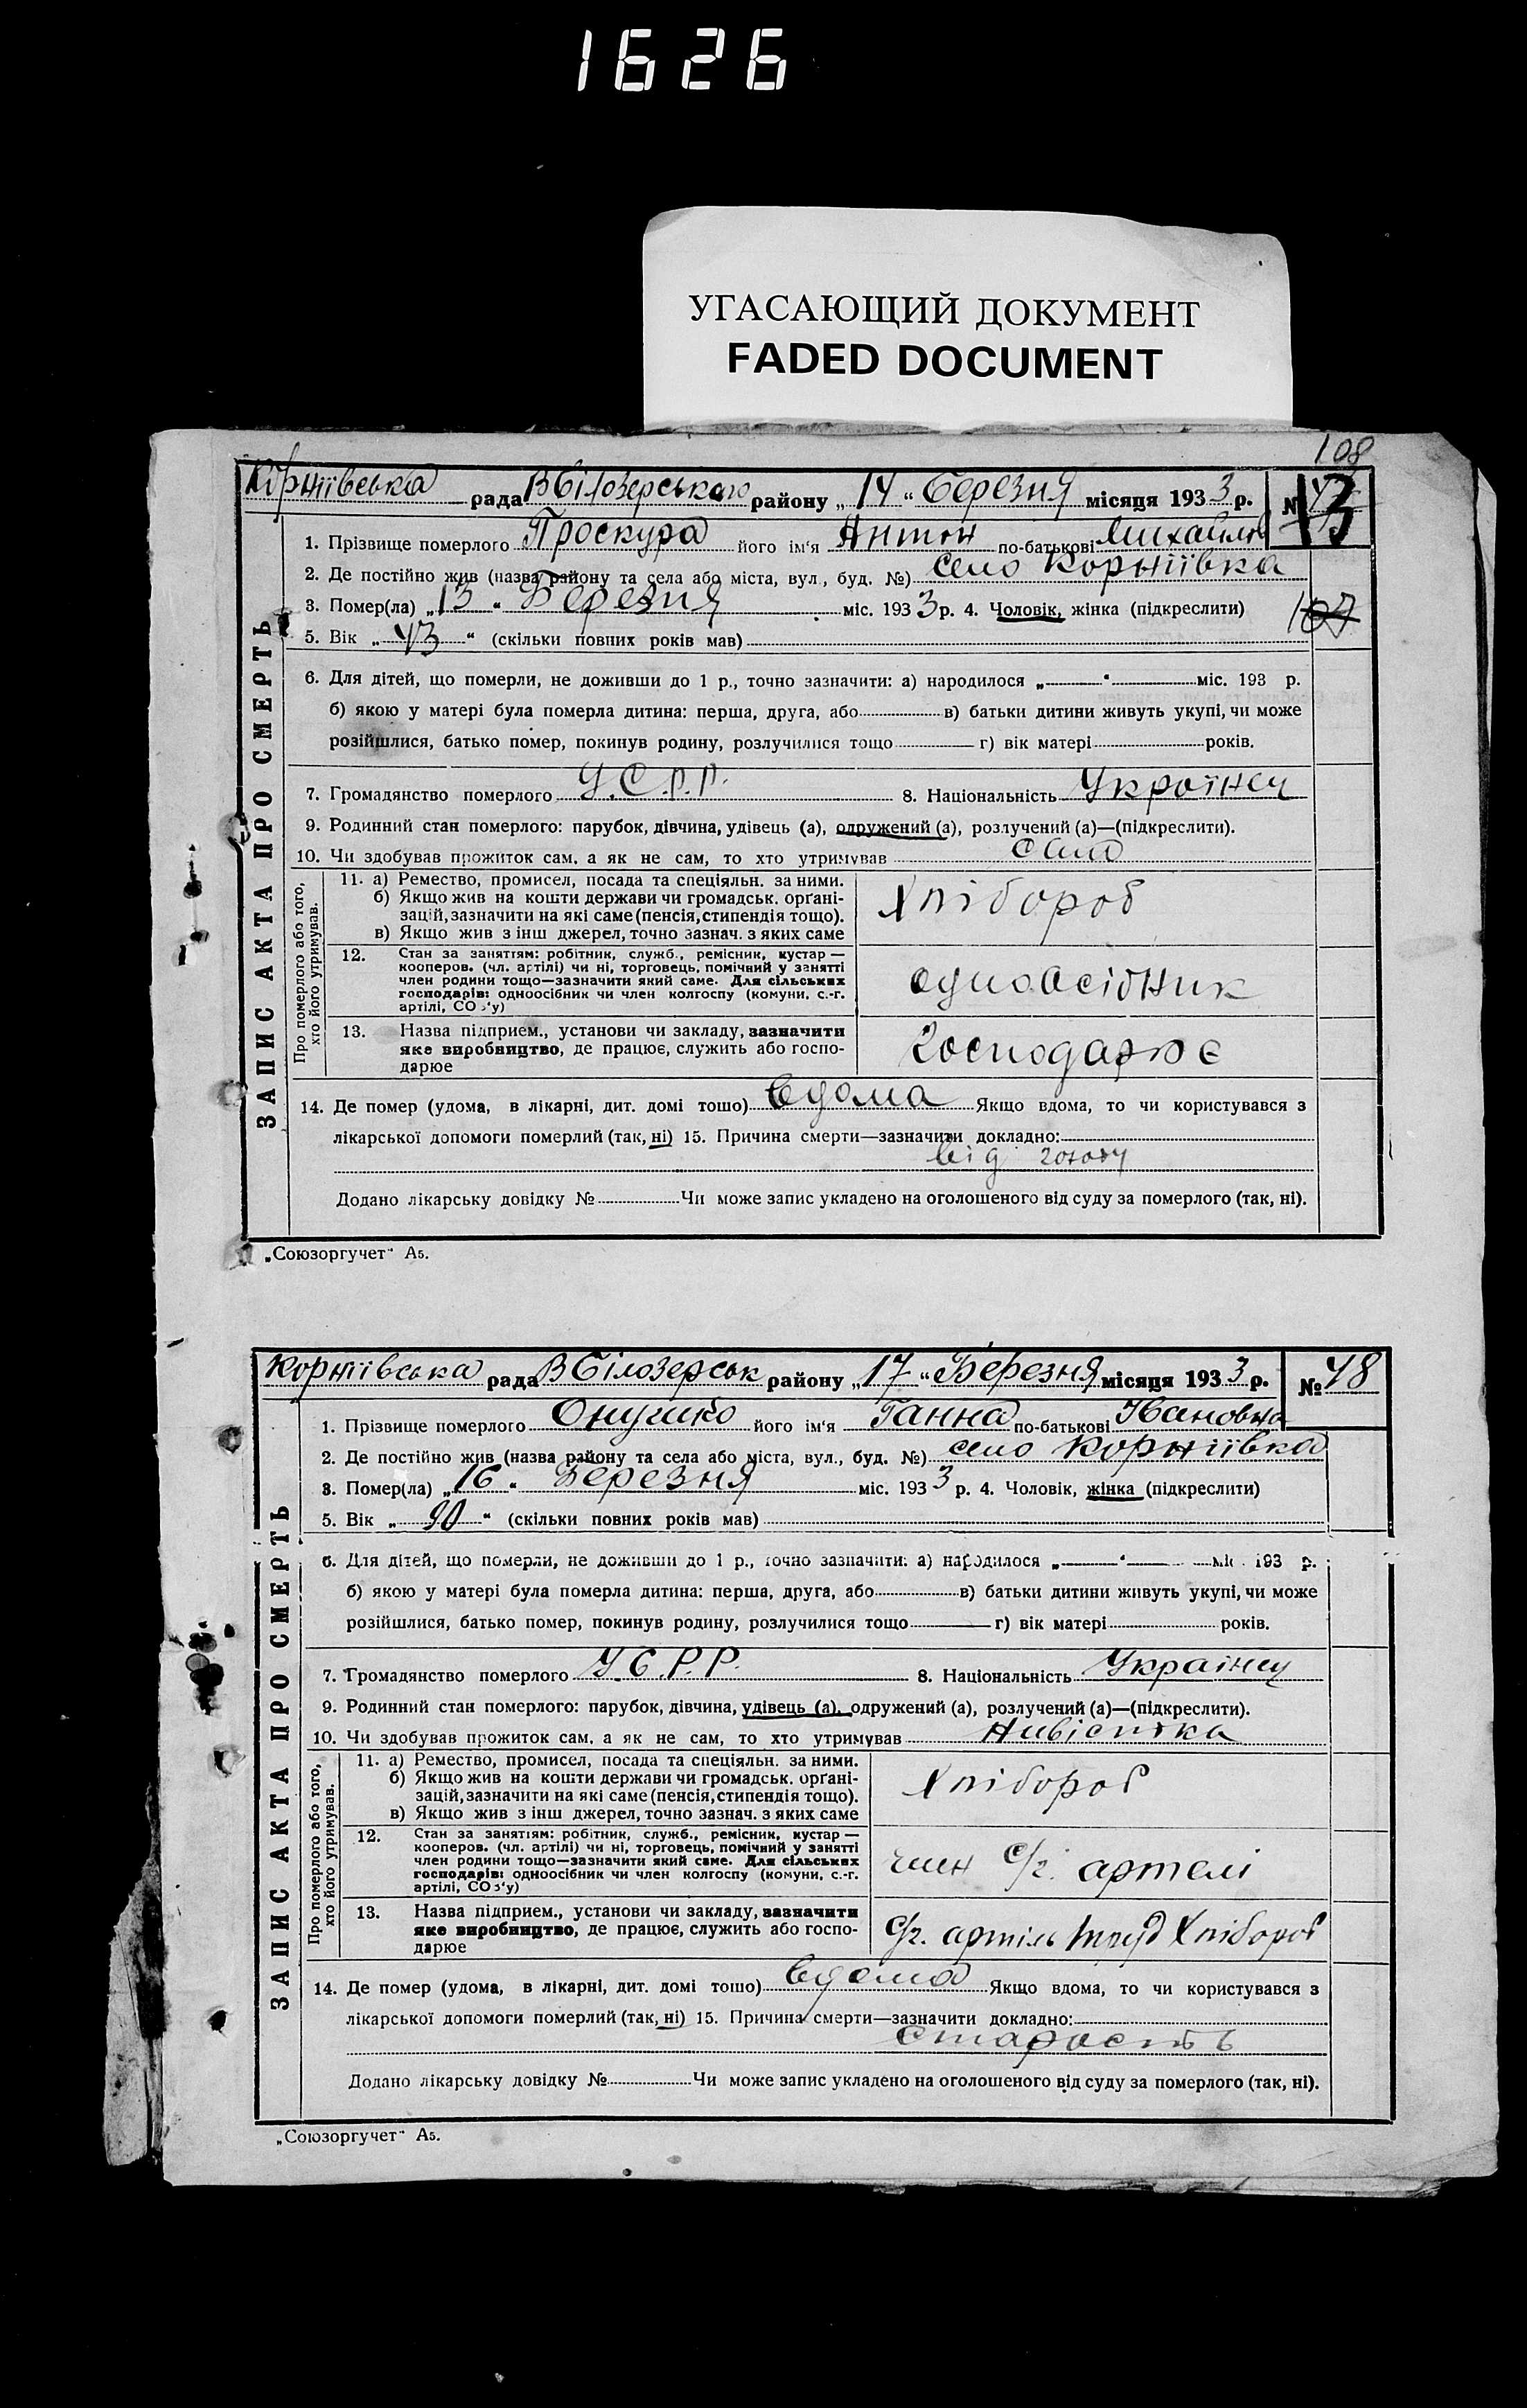 1626
УГАСАЮЩИЙ ДОКУМЕНТ
FADED DOCUMENT
108
Корніївська рада ВБілозерського району „ 14 “ Березня місяця 1933 р. №
1. Прізвище померлого Проскура його ім‘я Антон по-батькові Михайлов
2. Де постійно жив (назва району та села або міста, вул., буд. №) село Корніївка
3. Помер(ла) „ 13 “ Березня міс. 1933 р. 4. Чоловік, жінка (підкреслити)
107
5. Вік „ 43 “ (скільки повних років мав)
6. Для дітей, що померли, не доживши до 1 р., точно зазначити: а) народилося „ “ міс. 193 р.
б) якою у матері була померла дитина: перша, друга, або в) батьки дитини живуть укупі, чи може
розійшлися, батько помер, покинув родину, розлучилися тощо г) вік матері років.
7. Громадянство померлого У.С.Р.Р. 8. Національність Українец
9. Родинний стан померлого: парубок, дівчина, удівець (а), одружений (а), розлучений (а)—(підкреслити).
10. Чи здобував прожиток сам, а як не сам, то хто утримував сам
Про померлого або того, хто його утримував.
11. а) Ремество, промисел, посада та спеціяльн. за ними.
б) Якщо жив на кошти держави чи громадськ. орґані-
зацій, зазначити на які саме (пенсія, стипендія тощо).
в) Якщо жив з інш джерел, точно зазнач. з яких саме
Хлібороб
12. Стан за заняттям: робітник, служб., ремісник, кустар —
кооперов. (чл. артілі) чи ні, торговець, помічний у занятті
член родини тощо—зазначити який саме. Для сільських
господарів: одноосібник чи член колгоспу (комуни, с.-г.
артілі, СОЗ‘у)
одноосібник
13. Назва підприєм., установи чи закладу, зазначити
яке виробництво, де працює, служить або госпо-
дарює
господарює
14. Де помер (удома, в лікарні, дит. домі тошо) вдома Якщо вдома, то чи користувався з
лікарської допомоги померлий (так, ні) 15. Причина смерти—зазначити докладно:
від голоду
Додано лікарську довідку № Чи може запис укладено на оголошеного від суду за померлого (так, ні).
ЗАПИС АКТА ПРО СМЕРТЬ
„Союзоргучет“ А5.
Корніївська рада ВБілозерськ району „ 17 “ Березня місяця 1933 р. № 48
1. Прізвище померлого його ім‘я Ганна по-батькові Івановна
2. Де постійно жив (назва району та села або міста, вул., буд. №) село Корніївка
3. Помер(ла) „ 16 “ Березня міс. 1933 р. 4. Чоловік, жінка (підкреслити)
5. Вік „ 90 “ (скільки повних років мав)
6. Для дітей, що померли, не доживши до 1 р., точно зазначити: а) народилося „ “ міс. 193 р.
б) якою у матері була померла дитина: перша, друга, або в) батьки дитини живуть укупі, чи може
розійшлися, батько помер, покинув родину, розлучилися тощо г) вік матері років.
7. Громадянство померлого У.С.Р.Р. 8. Національність Українец
9. Родинний стан померлого: парубок, дівчина, удівець (а), одружений (а), розлучений (а)—(підкреслити).
10. Чи здобував прожиток сам, а як не сам, то хто утримував Нивістка
Про померлого або того, хто його утримував.
11. а) Ремество, промисел, посада та спеціяльн. за ними.
б) Якщо жив на кошти держави чи громадськ. орґані-
зацій, зазначити на які саме (пенсія, стипендія тощо).
в) Якщо жив з інш джерел, точно зазнач. з яких саме
Хлібороб
12. Стан за заняттям: робітник, служб., ремісник, кустар —
кооперов. (чл. артілі) чи ні, торговець, помічний у занятті
член родини тощо—зазначити який саме. Для сільських
господарів: одноосібник чи член колгоспу (комуни, с.-г.
артілі, СОЗ‘у)
член с/г. артелі
13. Назва підприєм., установи чи закладу, зазначити
яке виробництво, де працює, служить або госпо-
дарює
с/г. артіль Труд Хлібороб
14. Де помер (удома, в лікарні, дит. домі тошо) вдома Якщо вдома, то чи користувався з
лікарської допомоги померлий (так, ні) 15. Причина смерти—зазначити докладно:
старость
Додано лікарську довідку № Чи може запис укладено на оголошеного від суду за померлого (так, ні).
ЗАПИС АКТА ПРО СМЕРТЬ
„Союзоргучет“ А5.